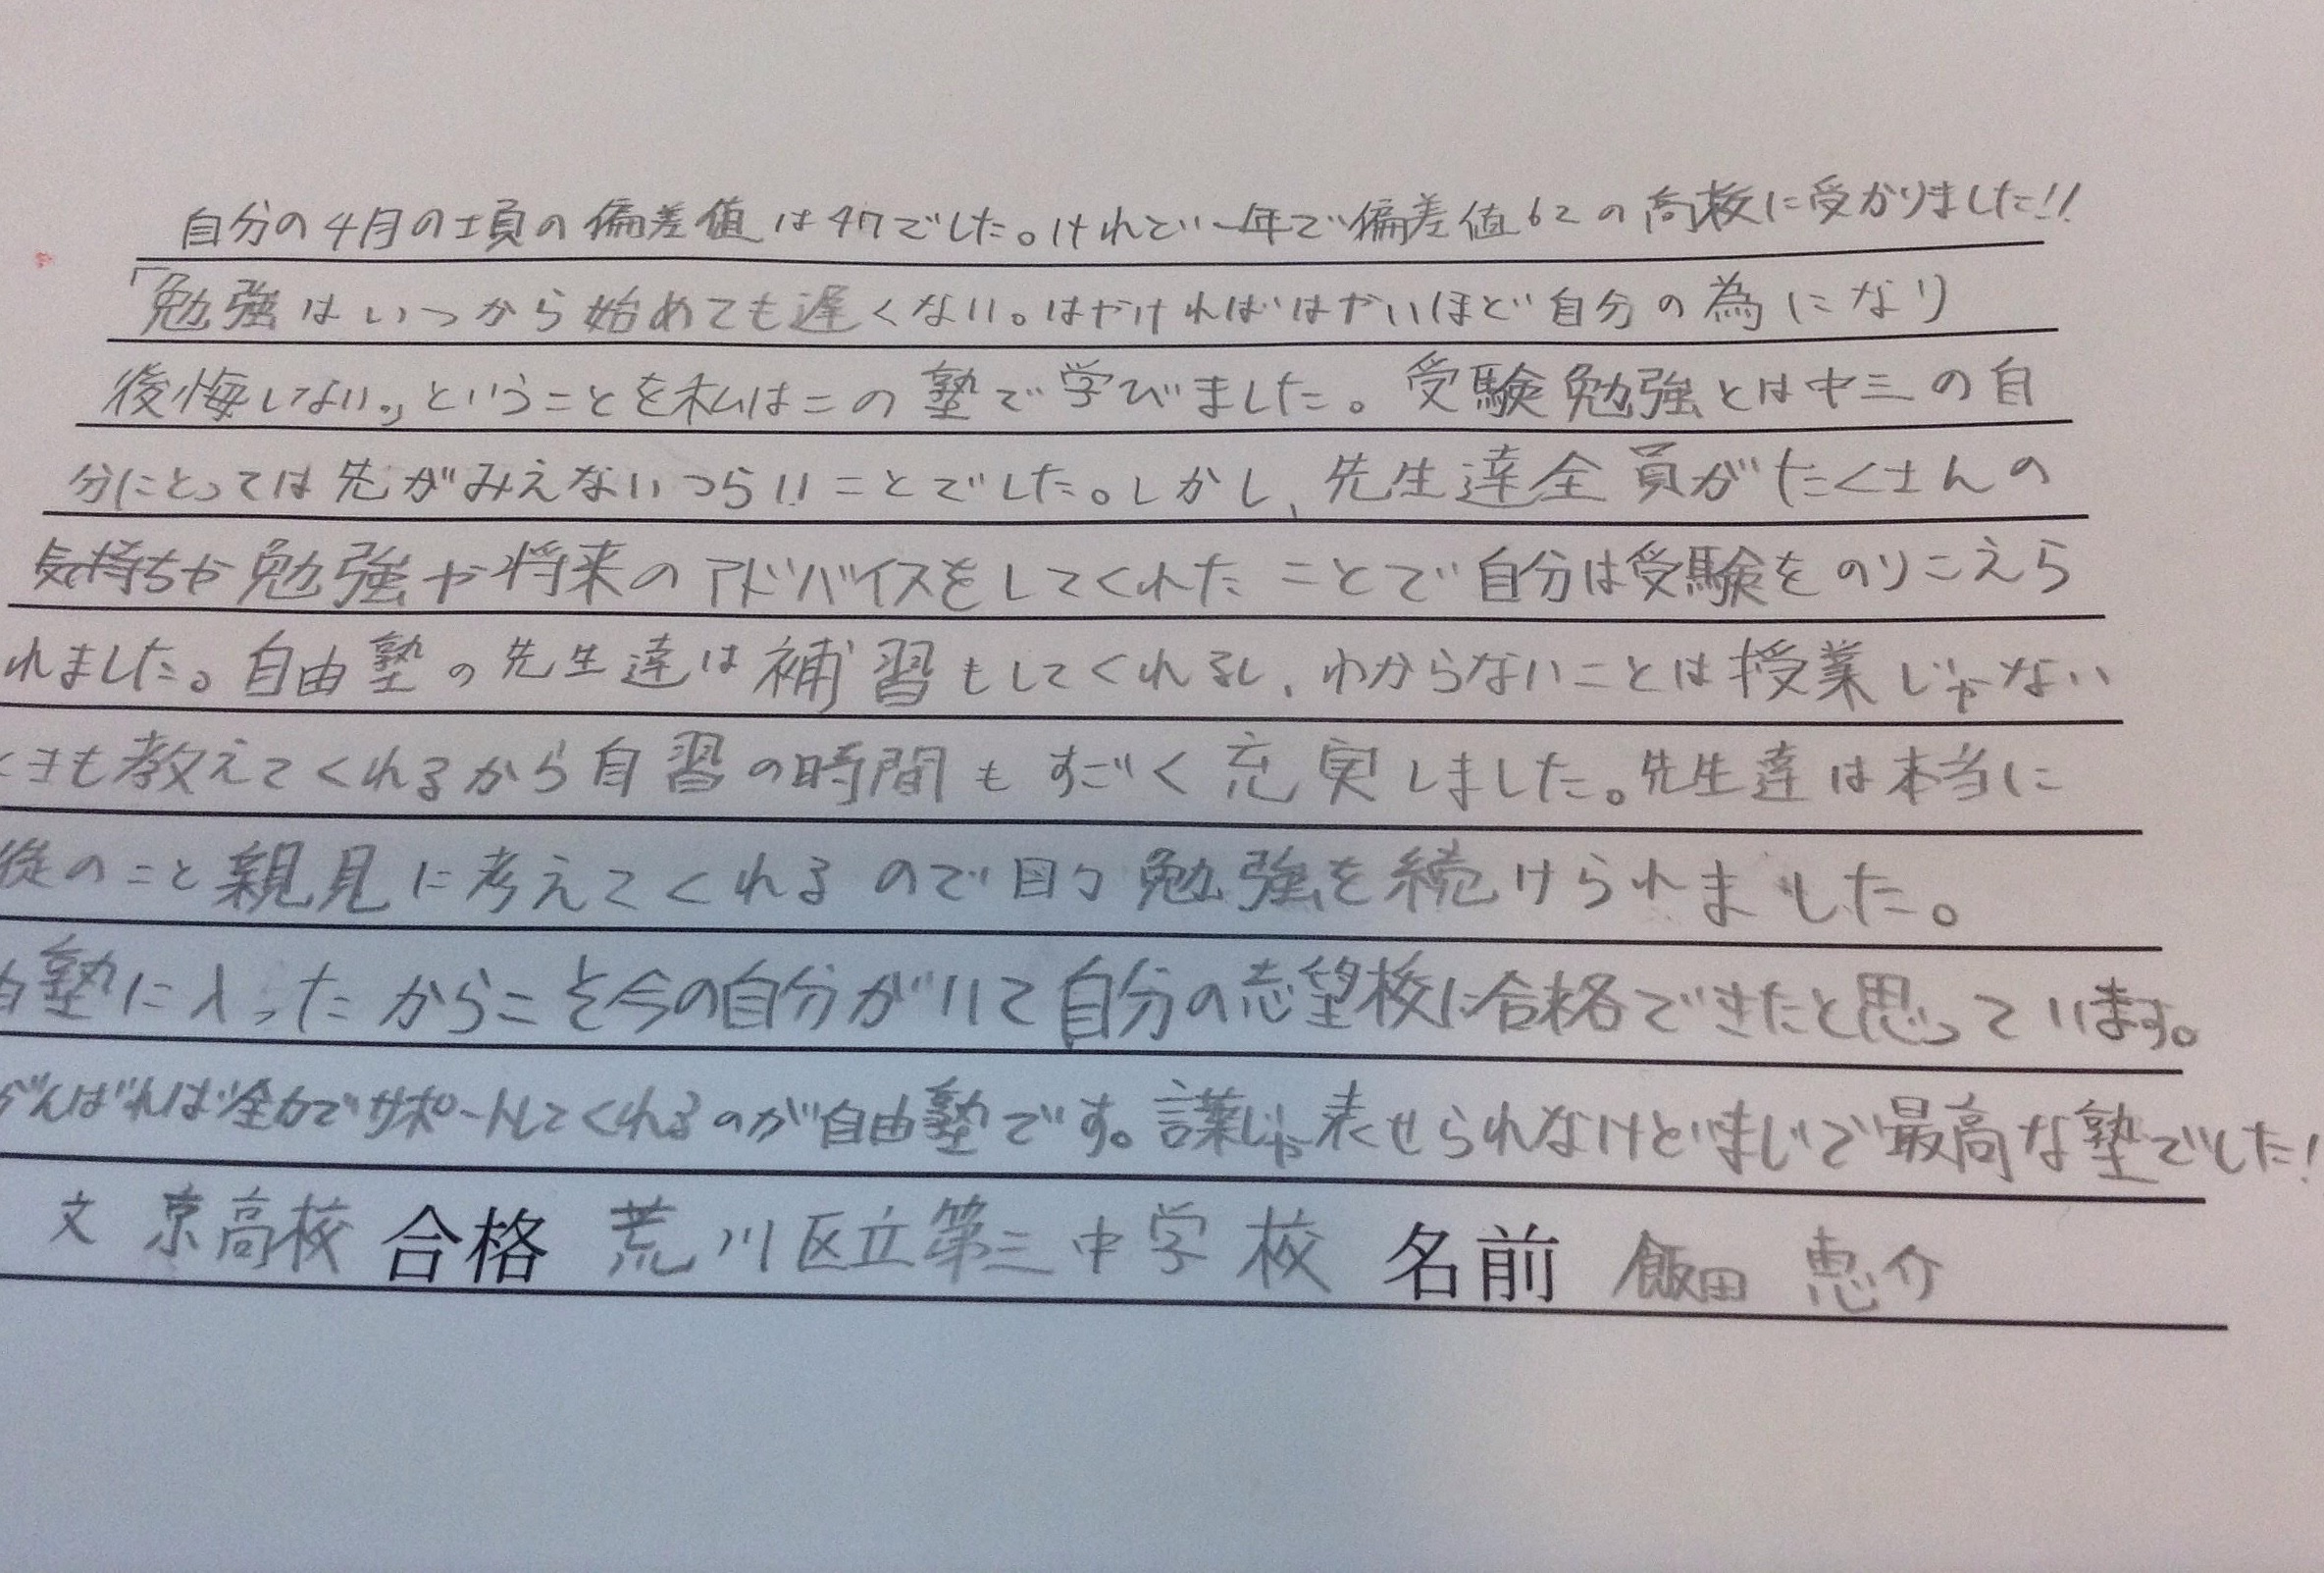 自分の4月の頃の偏差値は47でした。けれど一年で偏差値62の高校に受かりました!!
「勉強はいつから始めても遅くない。はやければはやいほど自分の為になり
後悔しない。」ということを私はこの塾で学びました。受験勉強とは中三の自
分にとっては先がみえないつらいことでした。しかし、先生達全員がたくさんの
気持ちや勉強や将来のアドバイスをしてくれたことで自分は受験をのりこえら
れました。自由塾の先生達は補習もしてくれるし、わからないことは授業じゃない
ときも教えてくれるから自習の時間もすごく充実しました。先生達は本当に
徒のこと親見に考えてくれるので日々勉強を続けられました。
由塾に入ったからこそ今の自分がいて自分の志望校に合格できたと思っています。
がんばれば全力でサポートしてくれるのが自由塾です。言葉じゃ表せられないけどまじで最高な塾でした!
文京高校 合格 荒川区立第三中学校 名前 飯田 恵介